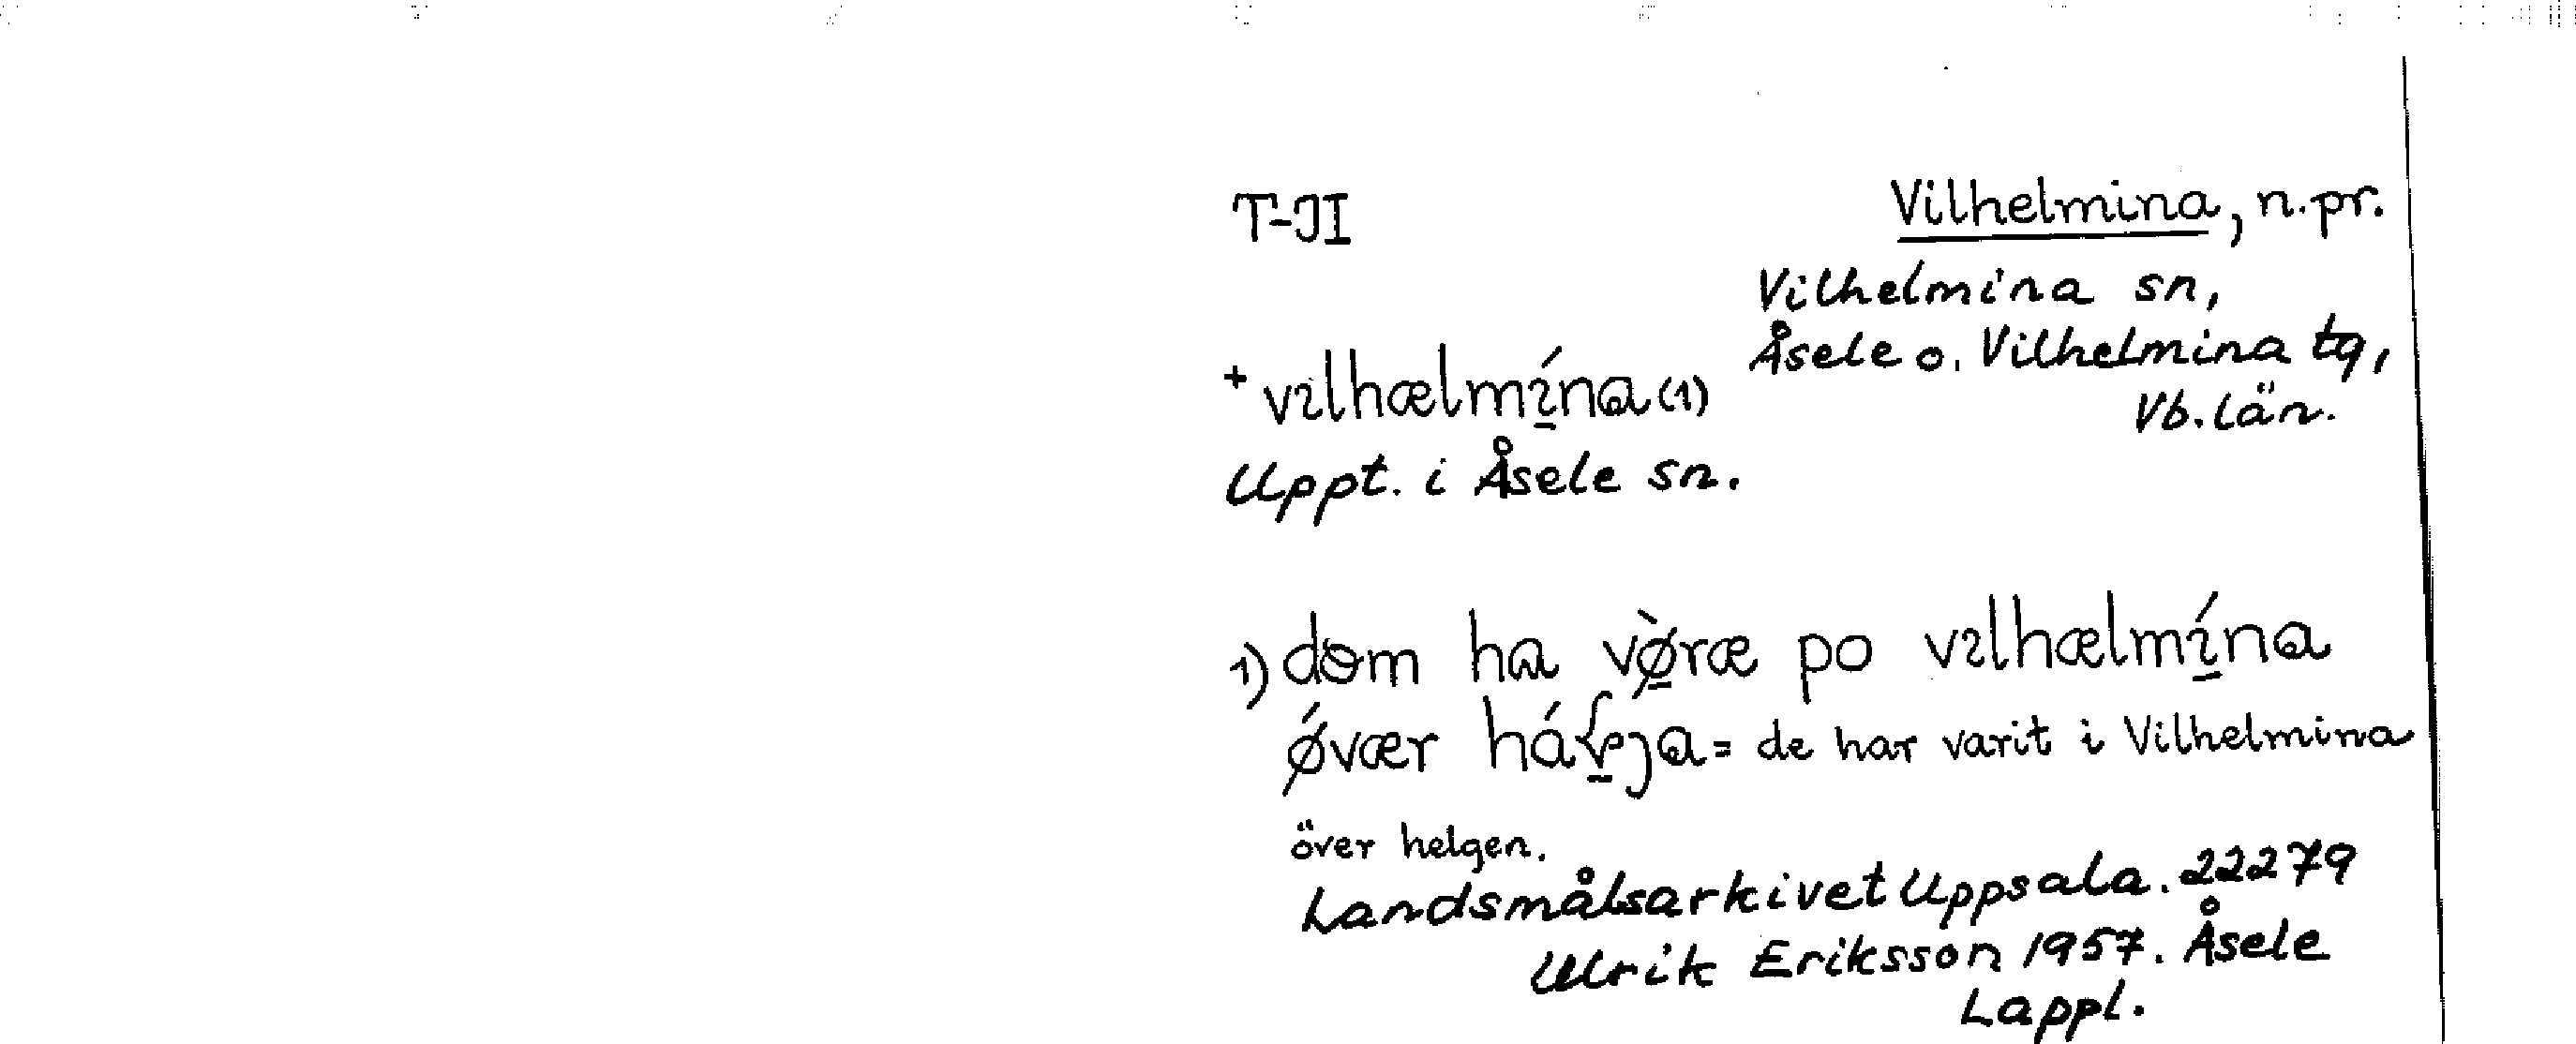 T-II
Vilhelmina, n.pr.
Vilhelmina sn,
Åsele o. Vilhelmina tg,
Vb. län.
+ vılhælmí̱na (1)
Uppt. i Åsele sn.
1) dɵm ha vø̱̀ræ po vılhælmí̱na
ǿvær = de har varit i Vilhelmina
över helgen.
Landsmålsarkivet Uppsala. 22279
Ulrik Eriksson 1957. Åsele
Lappl.